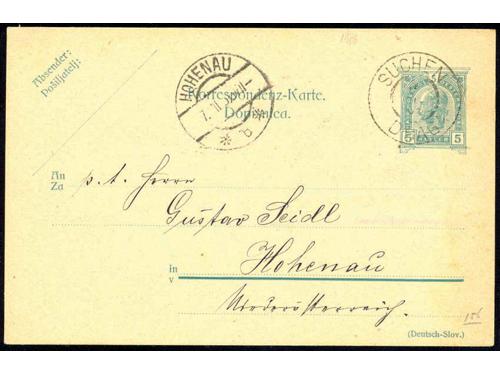 Absender:
Pošiljatelj:
HOHENAU
Correspondenz-Karte.
Dopisnica.
SUCHEN
5 HELLER 5
An
Za
p. t. Herrn
Gustav Seidl
In
v
Hohenau
Niederösterreich.
(Deutsch-Slov.)